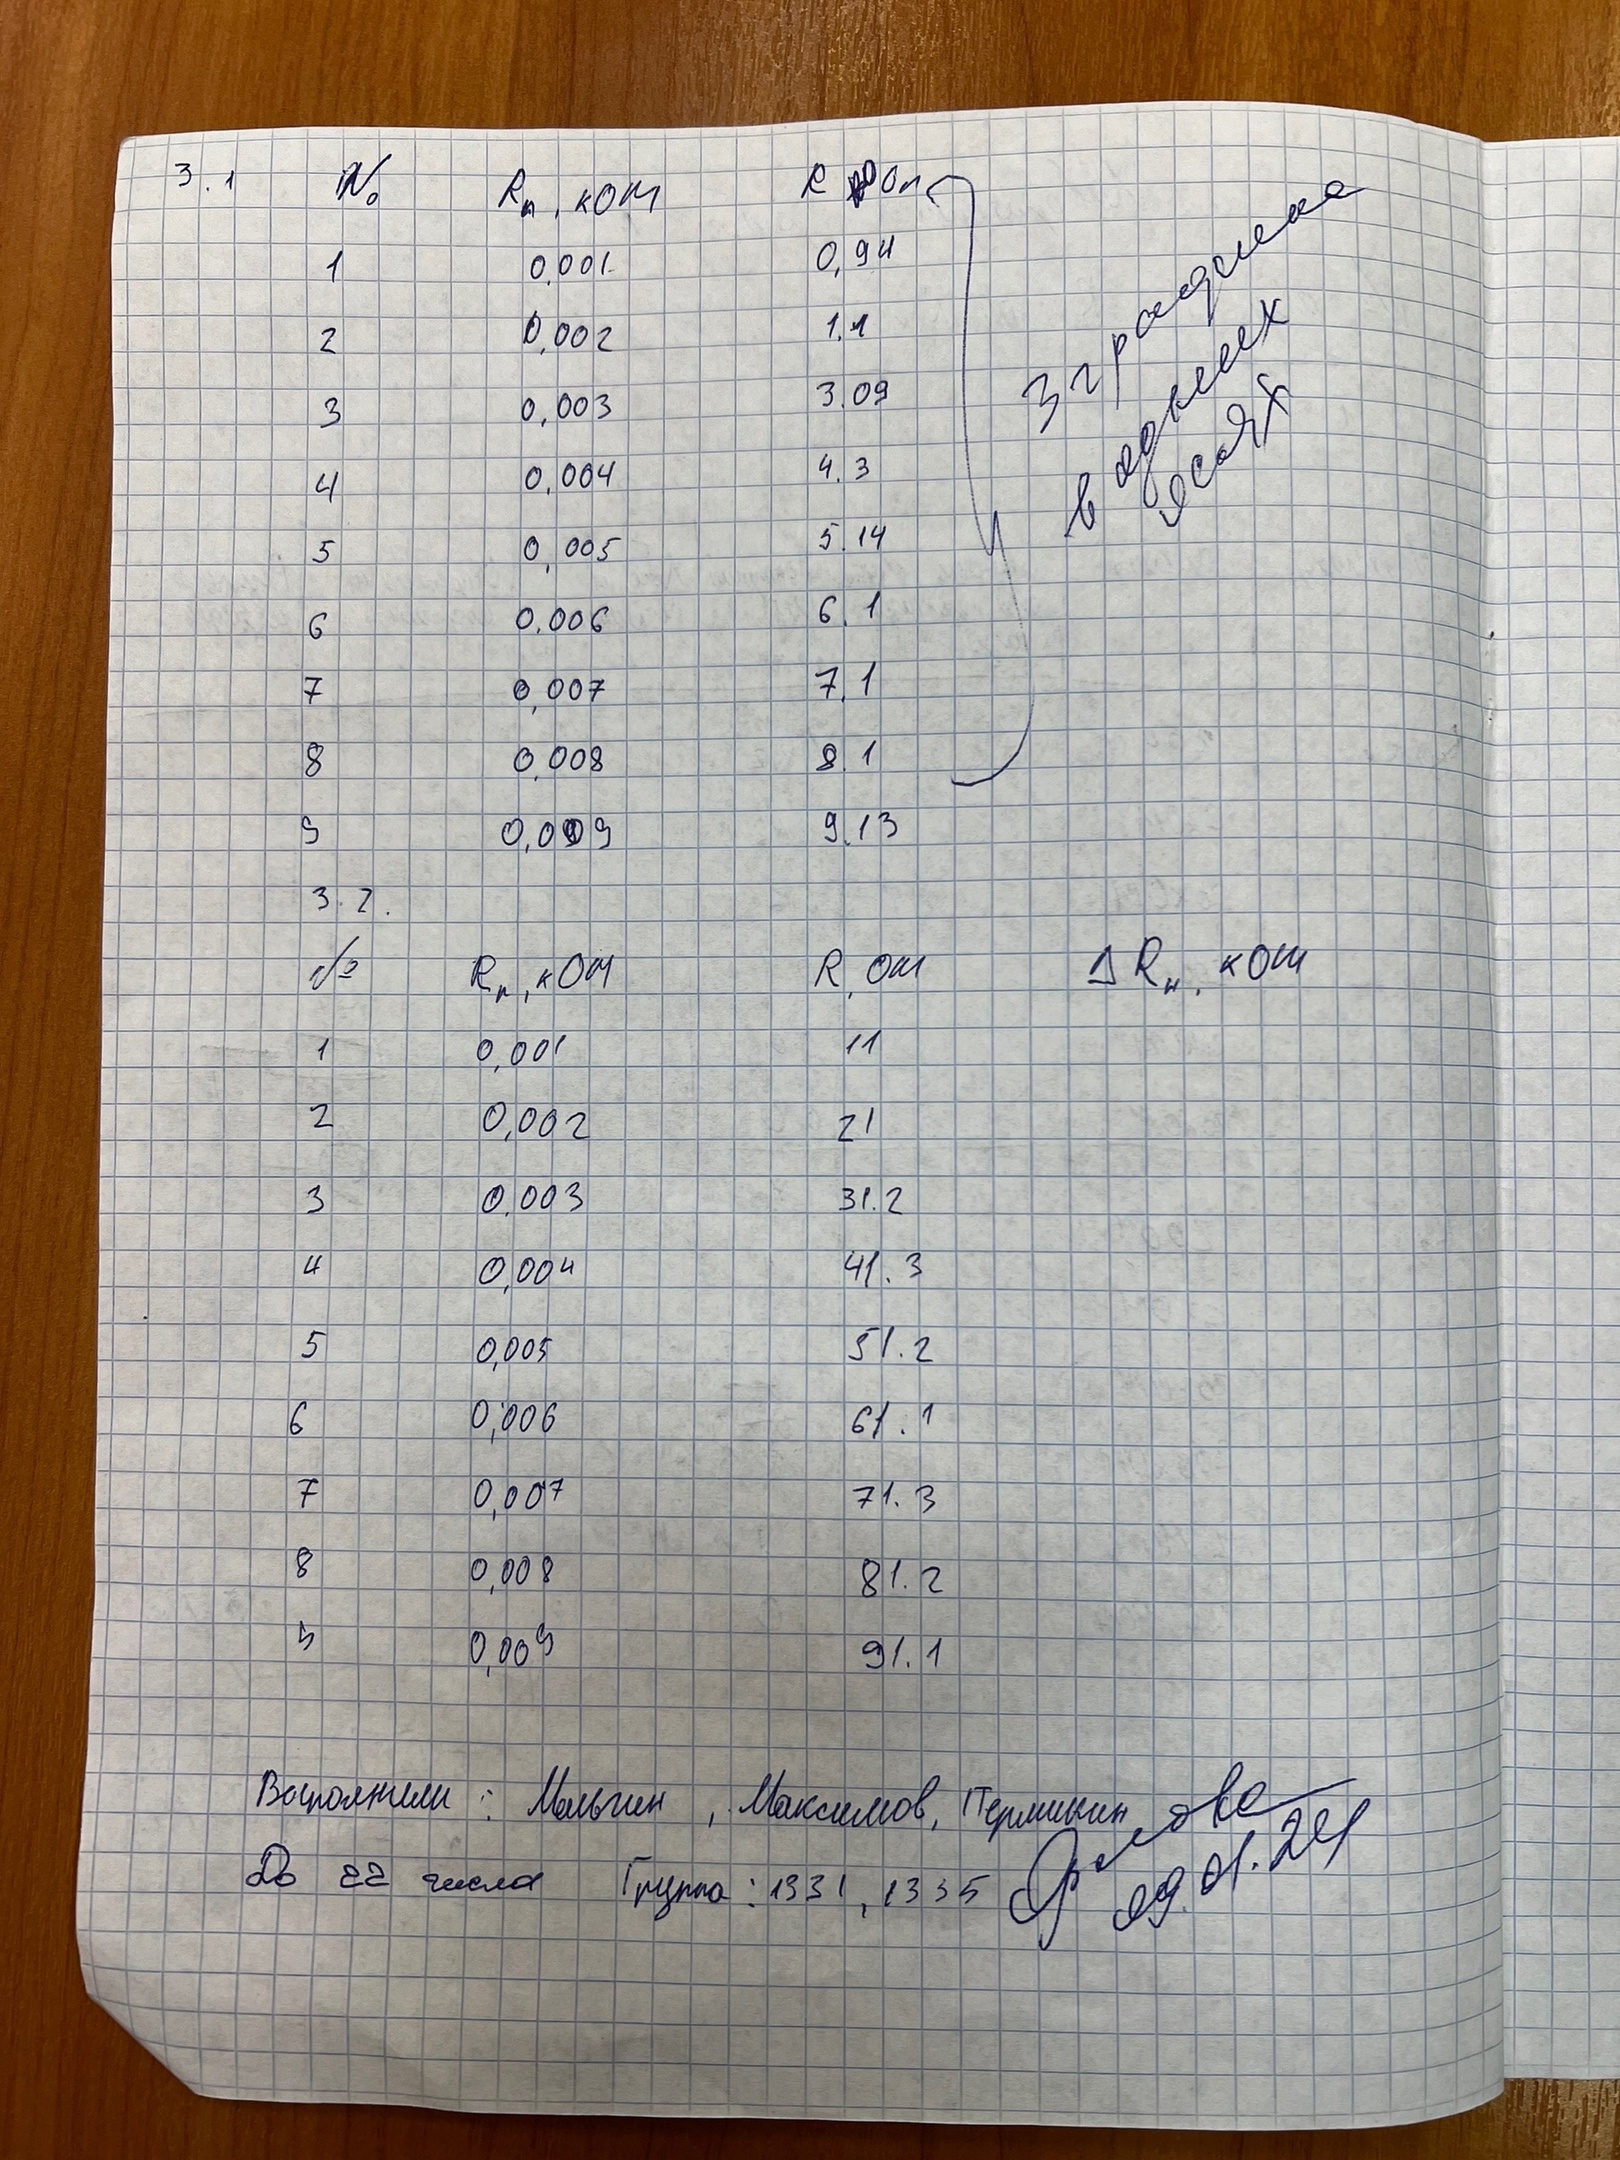 3.1 № Rп, кОм R Ом
1 0,001 0,94
2 0,002 1.1
3 0,003 3.09
4 0,004 4.3
5 0,005 5.14
6 0,006 6.1
7 0,007 7.1
8 0,008 8.1
9 0,009 9.13
3 градиента
в одних
осях
3.2.
№ Rп, кОм R, Ом Δ Rн, кОм
1 0,001 11
2 0,002 21
3 0,003 31.2
4 0,004 41.3
5 0,005 51.2
6 0,006 61.1
7 0,007 71.3
8 0,008 81.2
9 0,009 91.1
Выполнили: Малыгин, Максимов, Пермикин
До 22 числа Группа: 1331, 1335
09.01.24